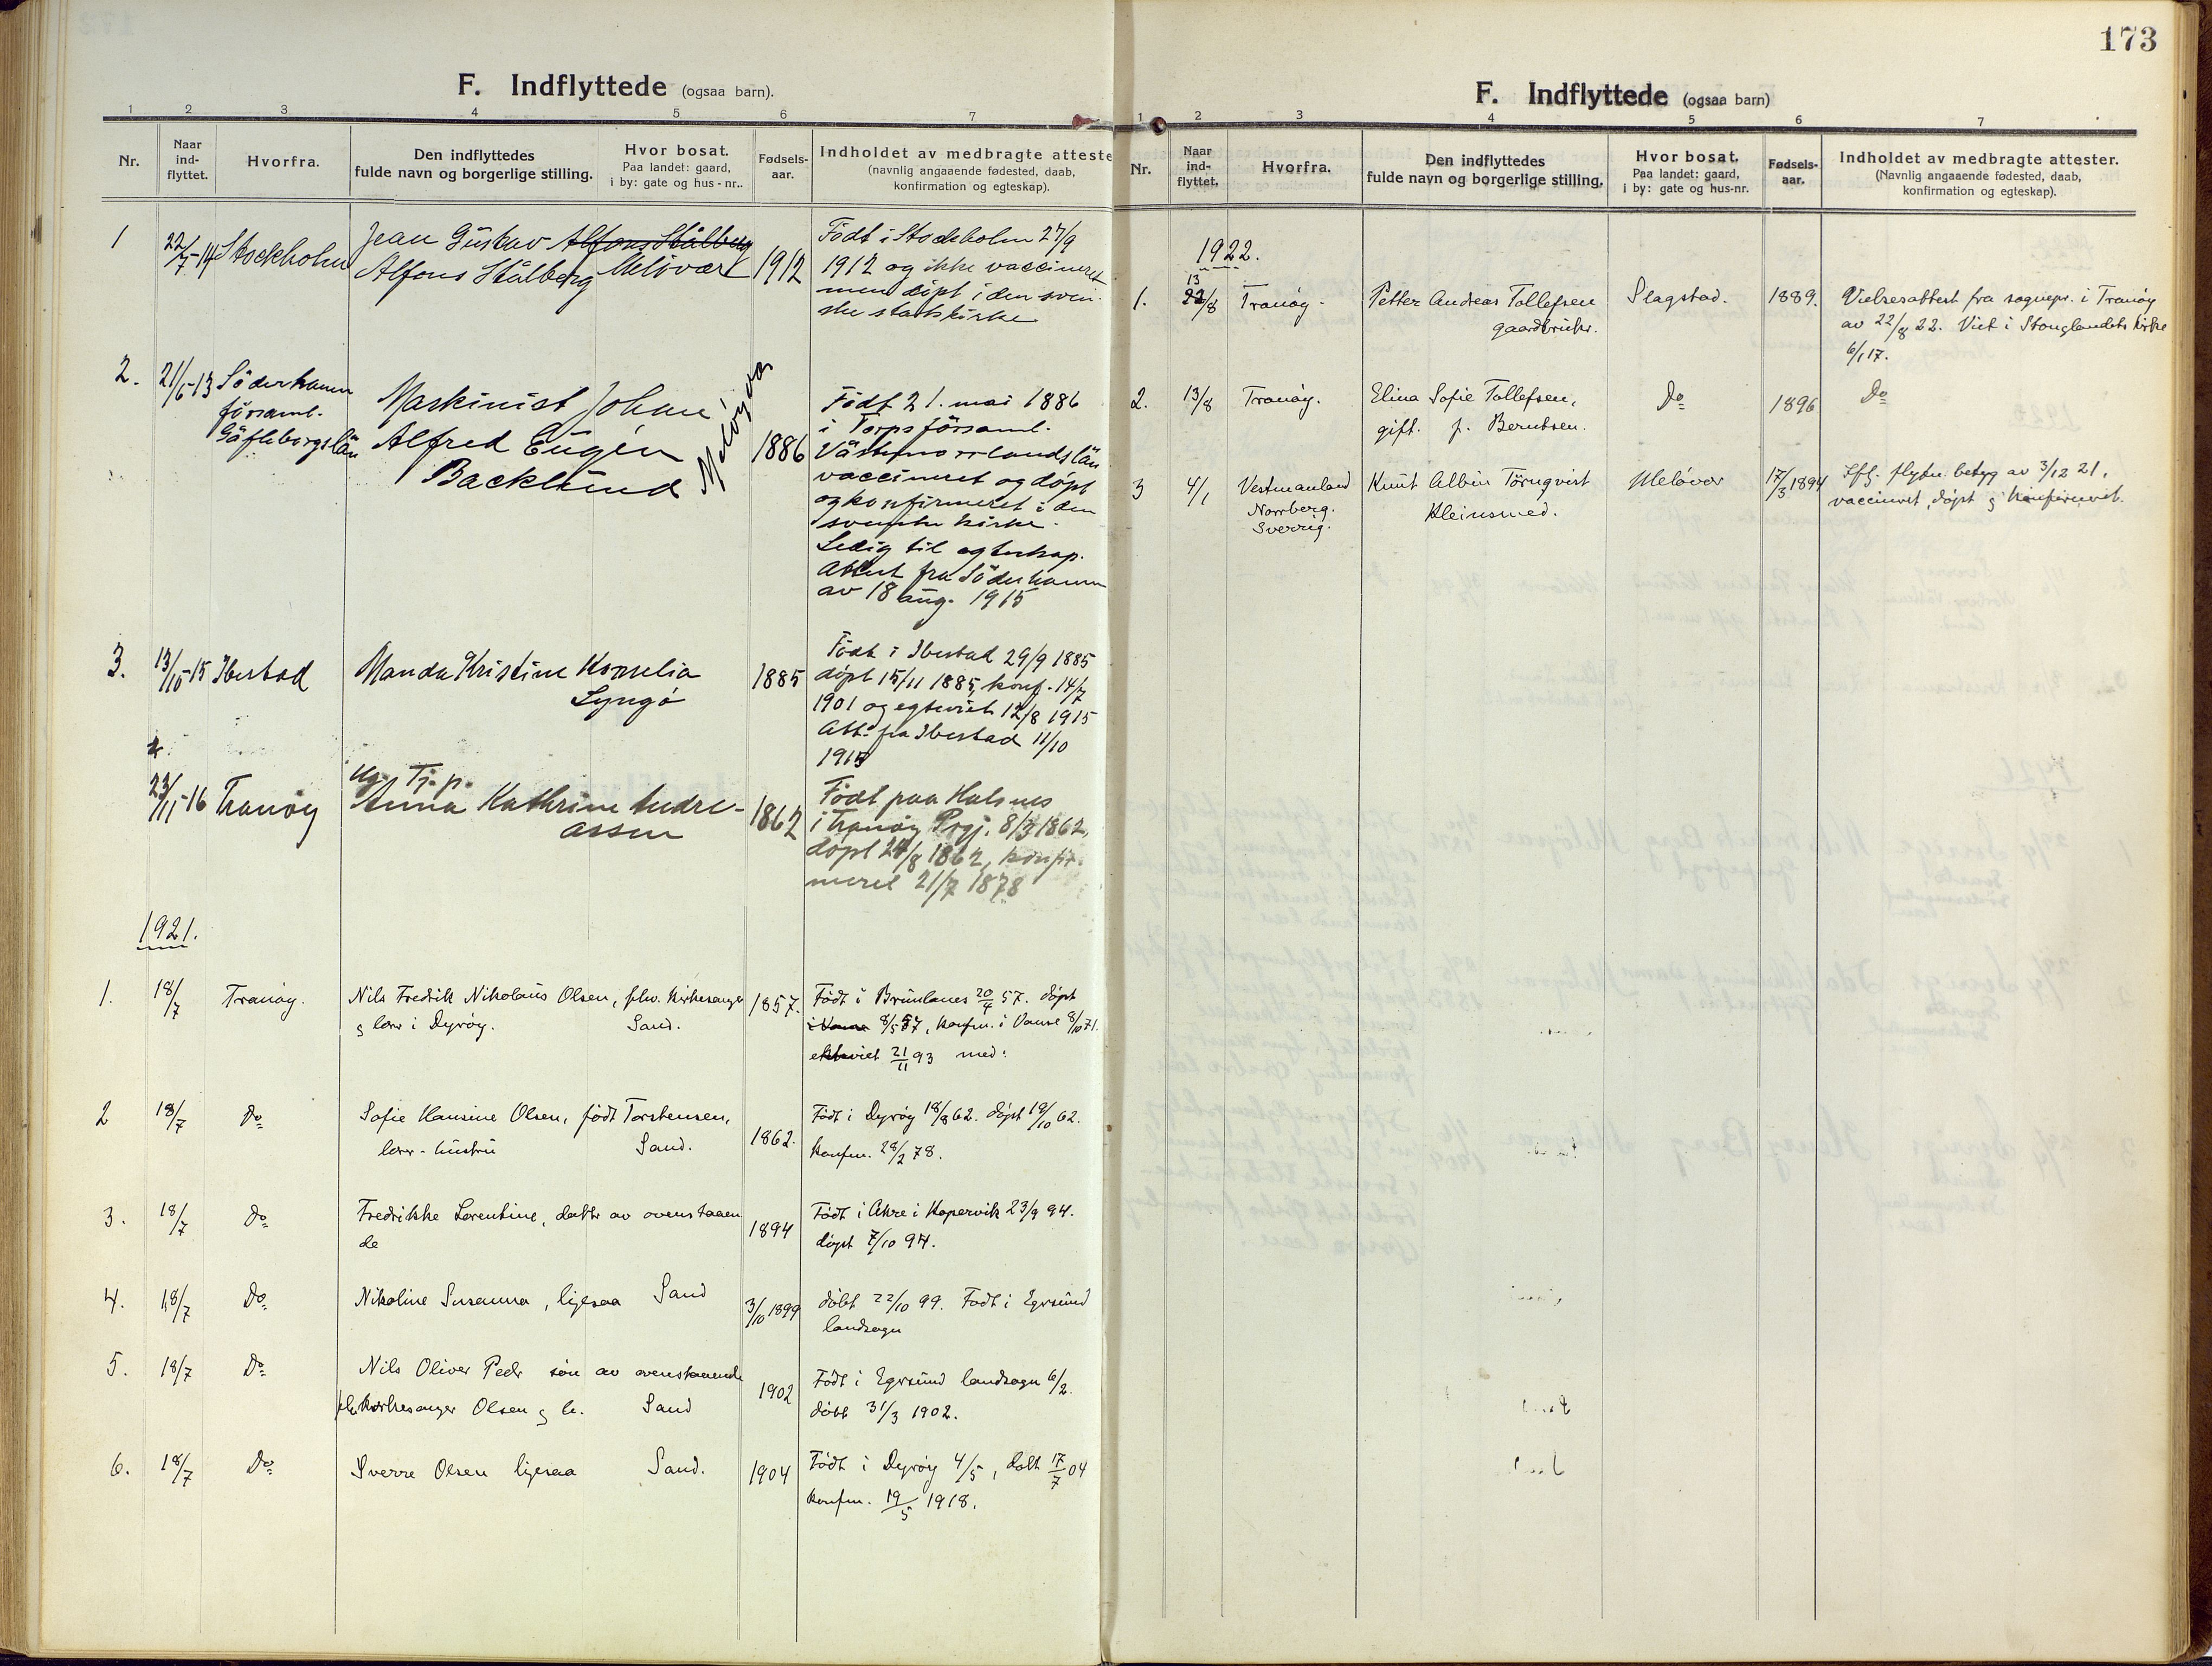 F. Indflyttede (ogsaa barn).
1 2 3 4 5 6 7
Nr.
Naar ind-flyttet.
Hvorfra.
Den indflyttedes fulde navn og borgerlige stilling.
Hvor bosat. Paa landet: gaard, i by: gate og hus-nr..
Fødsels-aar.
Indholdet av medbragte atteste (navnlig angaaende fødested, daab, konfirmation og egteskap).
1 22/7-14 Stockholm
Jean Gustav Alfons Stålberg
Alfons Stålberg Meløvær 1912
Født i Stockholm 27/9
1912 og ikke vaccineret
men døpt i den sven-
ske statskirke
2. 21/6-13 Söderhamn
församl.
Gäfleborgslän
Maskinist Johan
Alfred Eugén
Backlund
Meløyvær
1886
Født 21. mai 1886
i Torps församl.
Västernorrlands län
vaccineret og døpt
og konfirmeret i den
svenske kirke.
Ledig til egteskap.
Attest fra Söderhamn
av 18 aug. 1915
3. 13/10-15 Ibestad
Manda Kristine Kornelia
Lyngø
1885
Født i Ibestad 29/9 1885
døpt 15/11 1885, konf. 14/7
1901 og egteviet 12/8 1915
Att. fra Ibestad 11/10
1915
4.
23/11-16 Tranøy
Ug. Tj. p.
Anna Kathrine Andre-
assen
1862
Født paa Halsnes
i Tranøy Prgj. 8/3 1862,
døpt 24/8 1862, konfir-
meret 21/7 1878
1921.
1. 18/7 Tranøy.
Nils Fredrik Nikolaus Olsen, fhv. kirkesanger
& lærer i Dyrøy. Sand.
1857.
Født i Brunlanes 20/4 57. døpt
i Vanse 8/5 57, konfm. i Vanse 8/10 71.
ekteviet 21/11 93 med:
2 18/7 Do
Sofie Hansine Olsen, født Torstensen,
lærer-hustru Sand.
1862.
Født i Dyrøy 18/8 62. døpt 19/10 62.
Konfm. 28/2 78.
3. 18/7 Do
Fredrikke Lorentine, datter av ovenstaaen
de
1894
Født i Akre i Kopervik 23/9 94.
døpt 7/10 94.
4. 18/7 Do
Nikoline Susanna, ligesaa Sand
3/10 1899
døbt 22/10 99. Født i Egersund
landsogn
5. 18/7 Do
Nils Oliver Peder søn av ovenstaaende
fhv kirkesanger Olsen & h. Sand
1902
Født i Egersund landsogn 6/2.
døbt 31/3 1902.
6. 18/7 Do
Sverre Olsen ligesaa Sand.
1904
Født i Dyrøy 4/5, døbt 17/7 04
konfm. 19/5 1918.
173
F. Indflyttede (ogsaa barn)
1 2 3 4 5 6 7
Nr.
Naar ind-flyttet.
Hvorfra.
Den indflyttedes fulde navn og borgerlige stilling.
Hvor bosat. Paa landet: gaard, i by: gate og hus-nr.
Fødsels-aar.
Indholdet av medbragte attester. (Navnlig angaaende fødested, daab, konfirmation og egteskap).
1922.
13
1. 22/8 Tranøy.
Petter Andreas Tollefsen
gaardbruker.
Slagstad.
1889.
Vielsesattest fra sognepr. i Tranøy
av 22/8 22. Viet i Stonglandets kirke
6/1 17.
2. 13/8 Tranøy.
Elina Sofie Tollefsen,
gift. f. Berntsen.
Do
1896
Do
3 4/1 Vestmanland
Norrberg.
Sverrig.
Knut Albin Törnqvist
Kleinsmed.
Meløvær
17/3 1894
Iflg. flyttn. betyg av 3/12 21,
vaccineret, døpt & konfirmert.